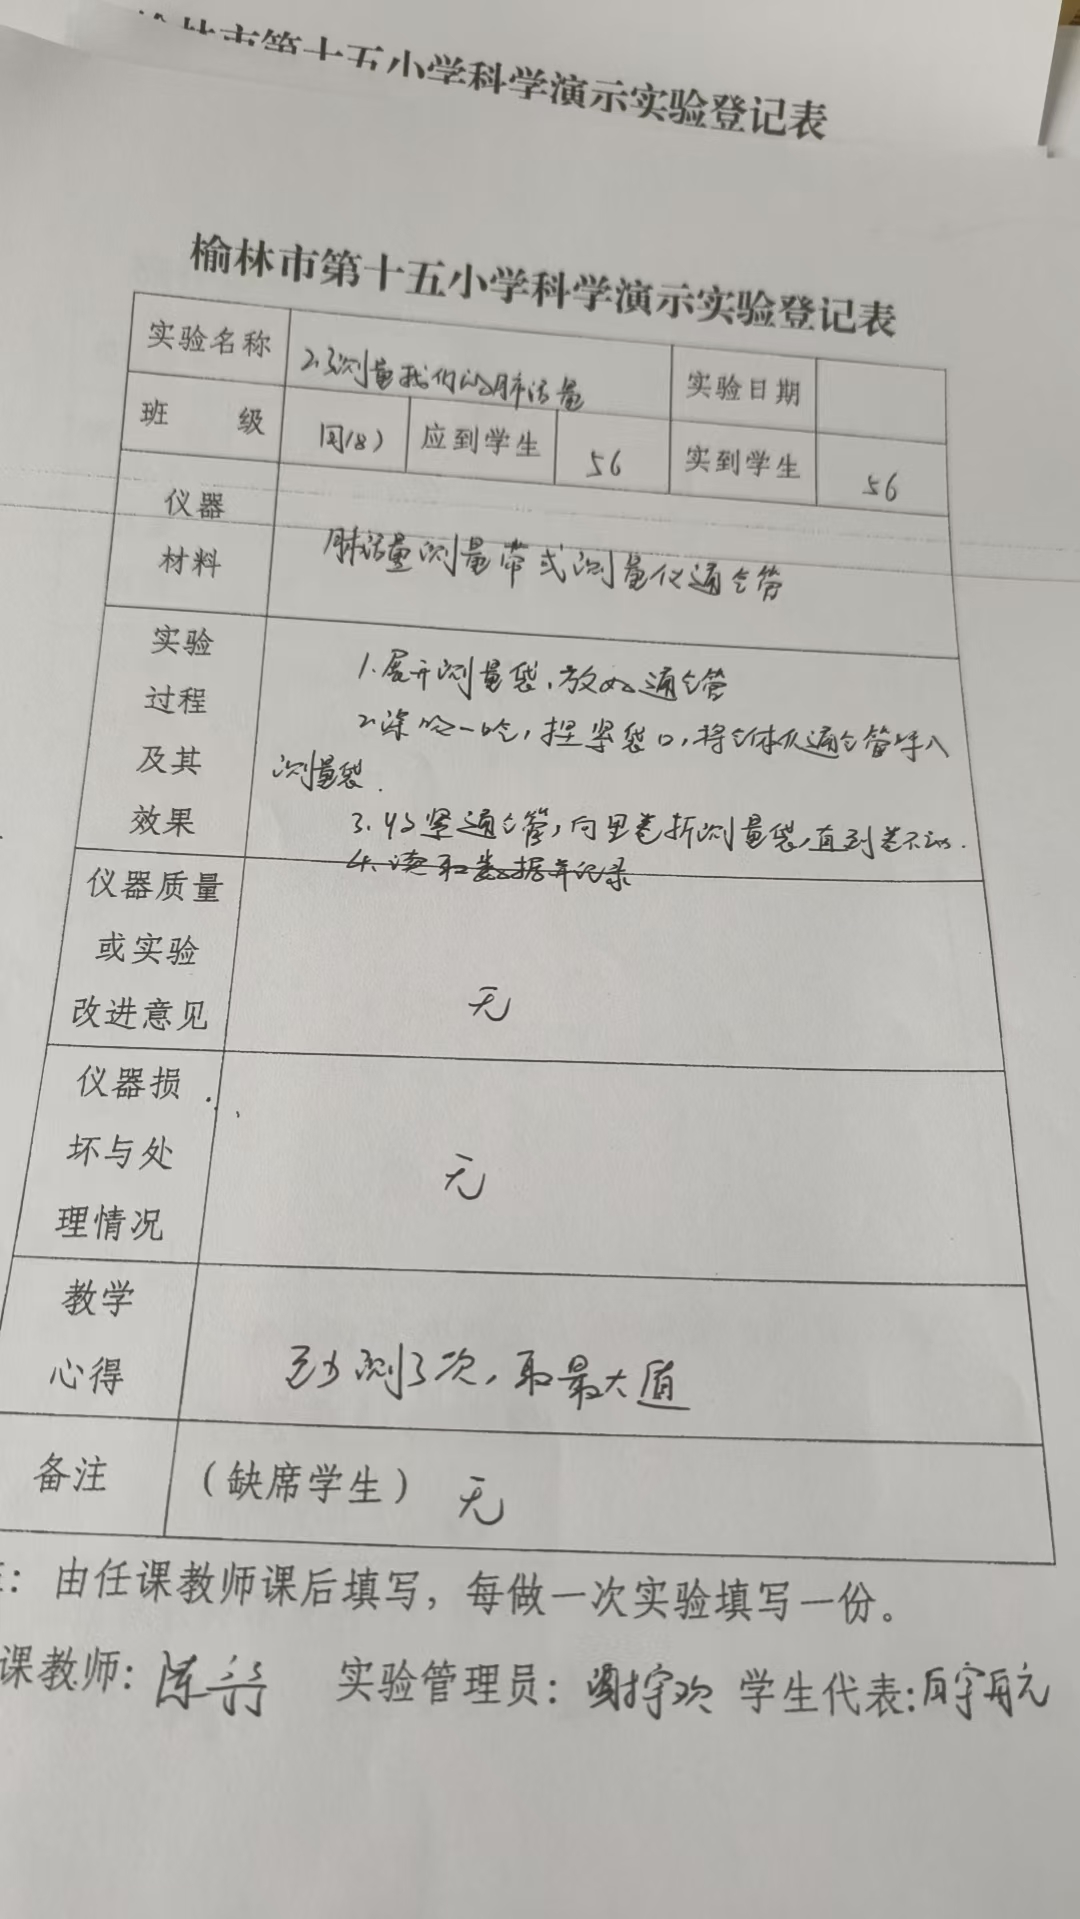 市第十五小学科学演示实验登记表
榆林市第十五小学科学演示实验登记表
实验名称 2.3测量我们的肺活量 实验日期
班 级 四(8) 应到学生 56 实到学生 56
仪器
材料
肺活量测量带或测量仪通气管
实验
过程
及其
效果
1.展开测量袋,放好通气管
2.深吸一口气,捏紧袋口,将气体从通气管呼入
测量袋.
3.紧通气管,向里卷折测量袋,直到卷不动.
4.读取数据并记录
仪器质量
或实验
改进意见
无
仪器损
坏与处
理情况
无
教学
心得
至少测3次,取最大值
备注 (缺席学生) 无
: 由任课教师课后填写,每做一次实验填写一份。
课教师: 陈 实验管理员: 宇欢 学生代表: 宇